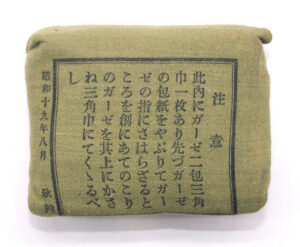 注意
此內にガーゼ二包三角
巾一枚あり先づガーゼ
の包紙をやぶりてガー
ゼの指にさはらざると
ころを創にあてのこり
のガーゼを其上にかさ
ね三角巾にてくゝるべ
し
昭和十九年八月